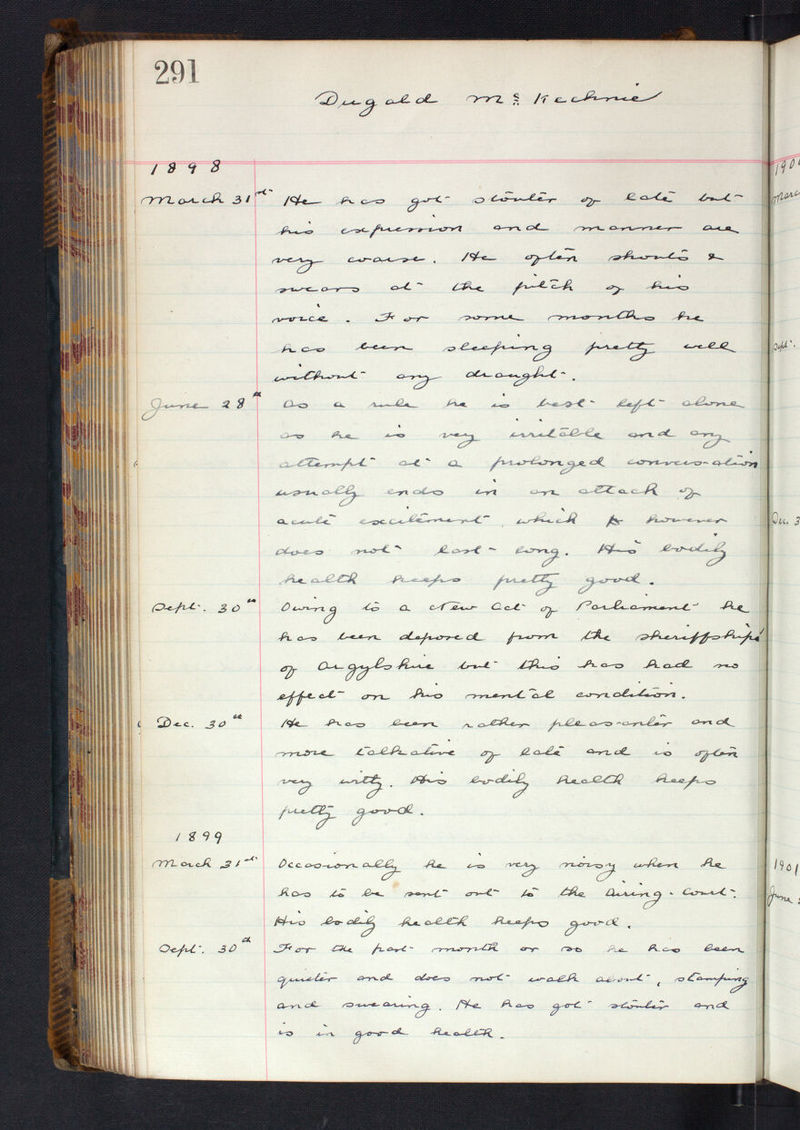 291
Dugald McKechnie
1898
March 31st He has got stouter of late but
his expression and manner are
very coarse. He often shouts &
swears at the pitch of his
voice. For some months he
has been sleeping pretty well
without any draught.
June 28th As a rule he is best left alone
as he is very irritable and any
attempt at a prolonged conversation
usually ends in an attack of
acute excitement which however
does not last long. His bodily
health keeps pretty good.
Sept. 30th Owing to a New Act of Parliament he
has been deposed from the sheriffships
of Argylshire but this has had no
effect on his mental condition.
Dec. 30th He has been rather pleasanter and
more talkative of late and is often
very witty. His bodily health keeps
pretty good.
1899
March 31st Occasionally he is very noisy when he
has to be sent out to the Airing-Court.
His bodily health keeps good.
Sept. 30th For the past month or so he has been
quieter and does not walk about, stamping
and swearing. He has got stouter and
is in good health.
Sept.
Dec. 3
1901
June